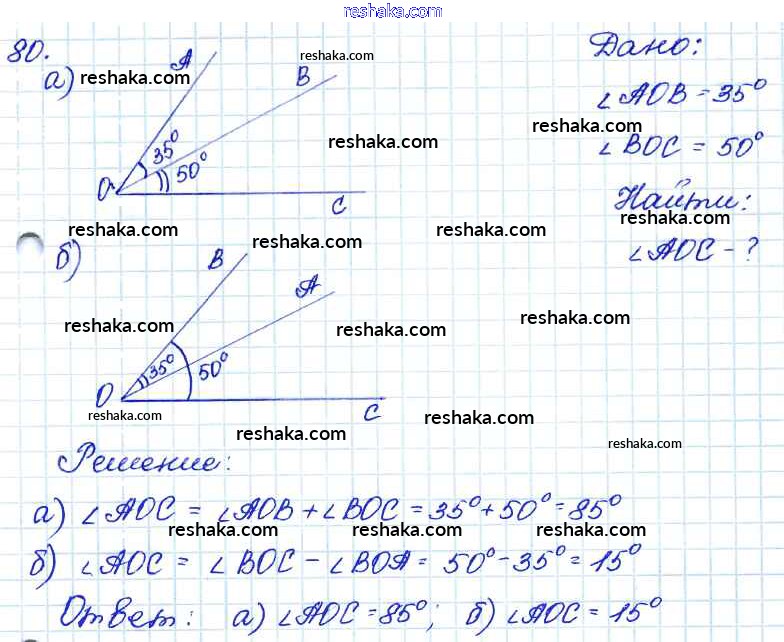 reshaka.com
80.
Дано:
A
reshaka.com
а) reshaka.com
B
∠AOB = 35°
35°
reshaka.com
reshaka.com
50°
∠BOC = 50°
O
C
Найти:
reshaka.com
reshaka.com
reshaka.com
reshaka.com
б)
B
∠AOC - ?
A
reshaka.com
reshaka.com
reshaka.com
35°
50°
O
C
reshaka.com
reshaka.com
reshaka.com
reshaka.com
Решение:
а) ∠AOC = ∠AOB + ∠BOC = 35° + 50° = 85°
reshaka.com reshaka.com reshaka.com
б) ∠AOC = ∠BOC - ∠BOA = 50° - 35° = 15°
Ответ: а) ∠AOC = 85°; б) ∠AOC = 15°